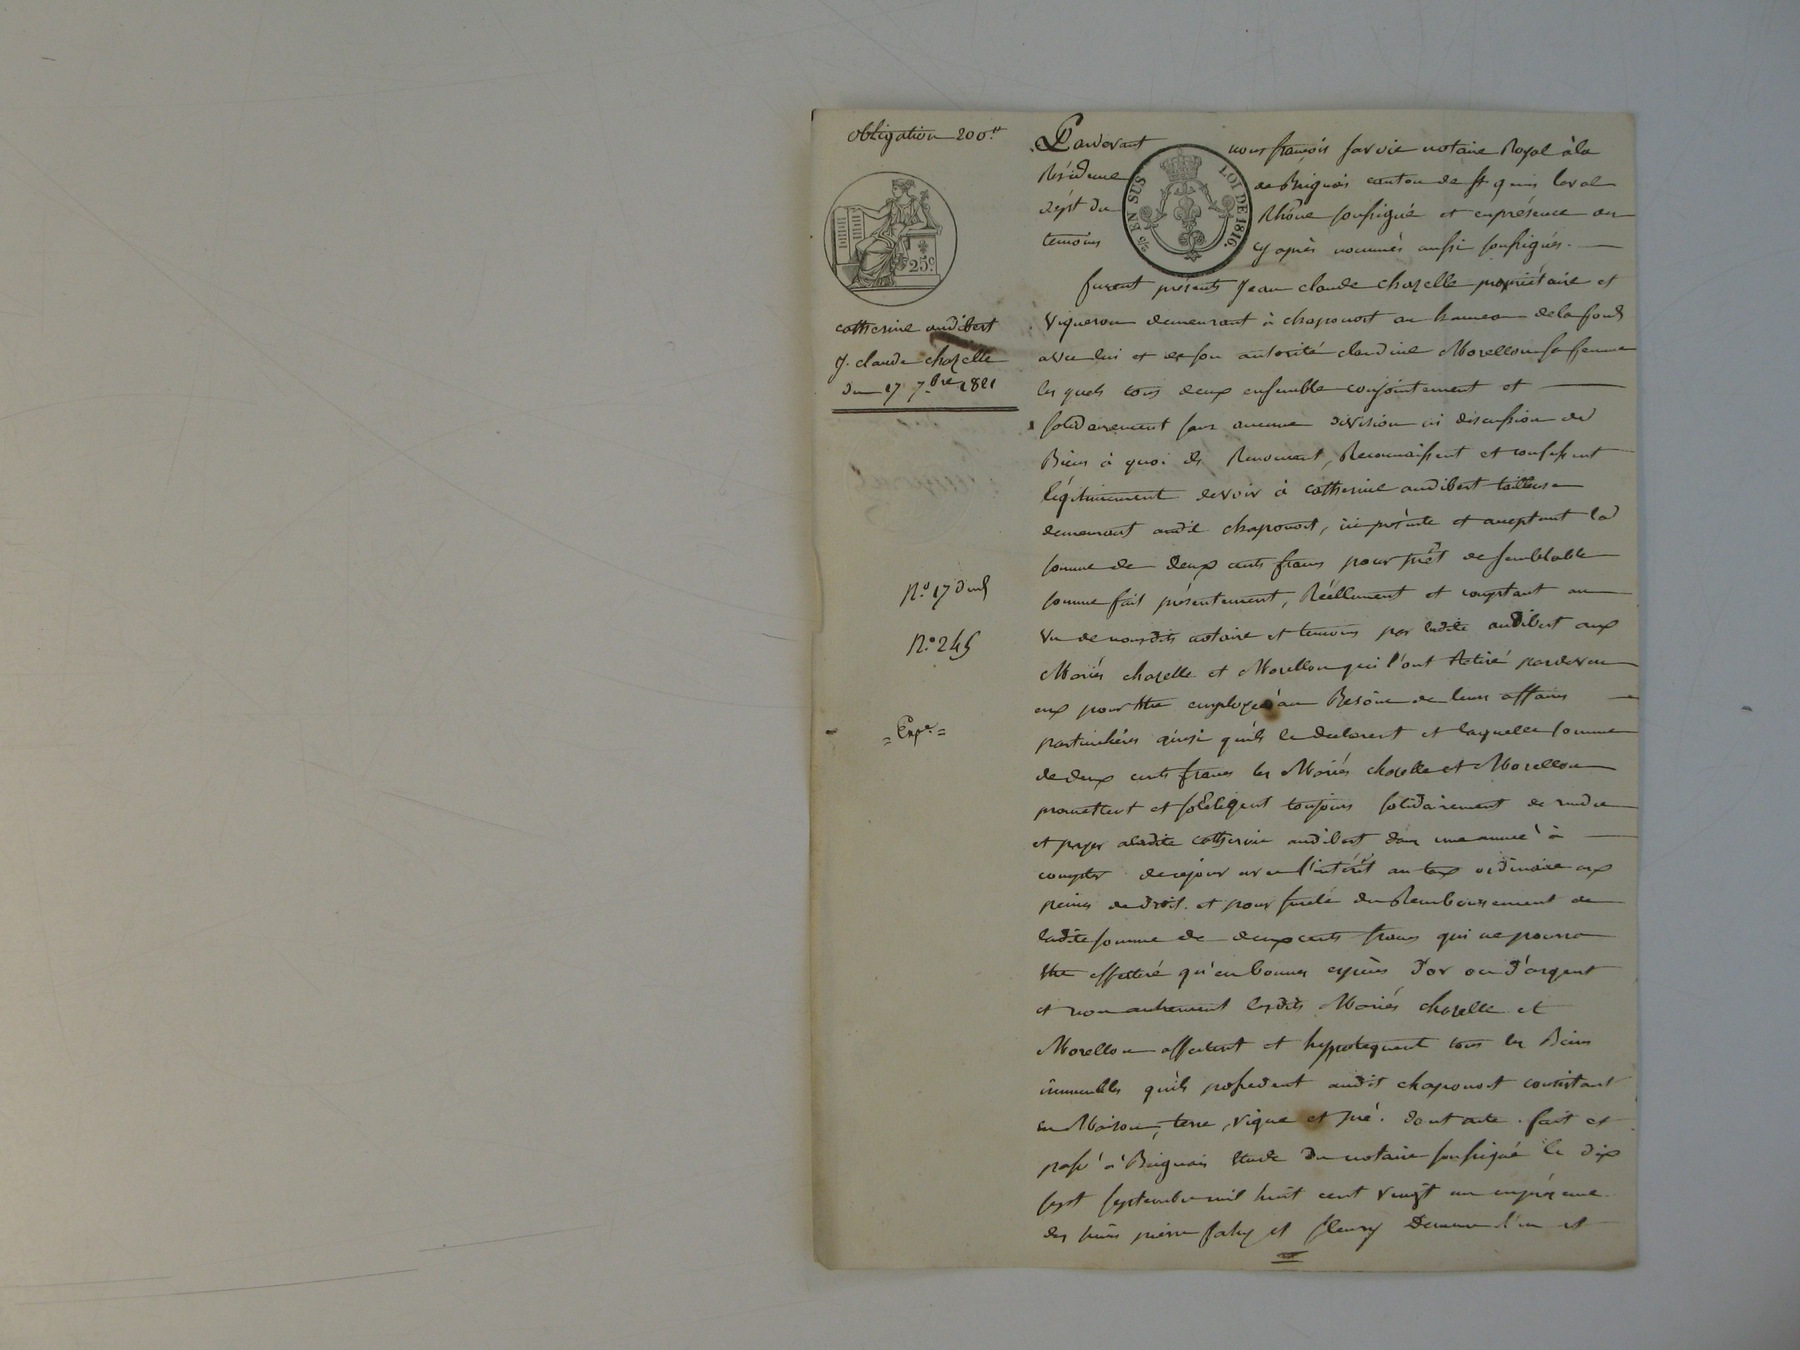 obligation 200.tt
25.c
catherine audibert
J. claude chazelle
du 17 7.bre 1821
N.o 17 du R
N.o 245
= Exp.e =
Pardevant nous françois savoie notaire Royal à la
Résidence de Brignais canton de st genis laval
dépt du Rhône soussigné et en présence des
temoins cy après nommés aussi soussignés.
EN SUS LOI DE 1816.
furent présents Jean claude chazelle propriétaire et
vigneron demeurant à chaponost au hameau de la
avec lui et de son autorité claudine Morellon sa femme
les quels tous deux ensemble conjointement et
solidairement sans aucune division ni discussion de
Biens à quoi ils Renoncent, Reconnaissent et confessent
légitimement devoir à catherine audibert tailleuse
demeurant audit chaponost, ici présente et acceptant la
somme de deux cents francs pour prêt de semblable
somme fait présentement, Réellement et comptant au
vu de nousdits notaire et temoins par ladite audibert aux
Mariés chazelle et Morellon qui l'ont Retiré pardevers
eux pour être employée au Besoin de leurs affaires
particulières ainsi qu'ils le declarent et laquelle somme
de deux cents francs les Mariés chazelle et Morellon
promettent et s'obligent toujours solidairement de rendre
et payer à ladite catherine audibert dans une année à
compter de ce jour avec l'intérêt au taux ordinaire aux
peines de droit. et pour sureté du Remboursement de
ladite somme de deux cents francs qui ne pourra
être effectué qu'en bonnes espèces d'or ou d'argent
et non autrement lesdits Mariés chazelle et
Morellon affectent et hypotequent tous les Biens
immeubles qu'ils possedent audit chaponost consistant
en Maison, terre, vigne et pré. dont acte. fait et
passé à Brignais étude du notaire soussigné le dix
sept septembre mil huit cent vingt un en présence
des sieurs pierre et fleury l'un et